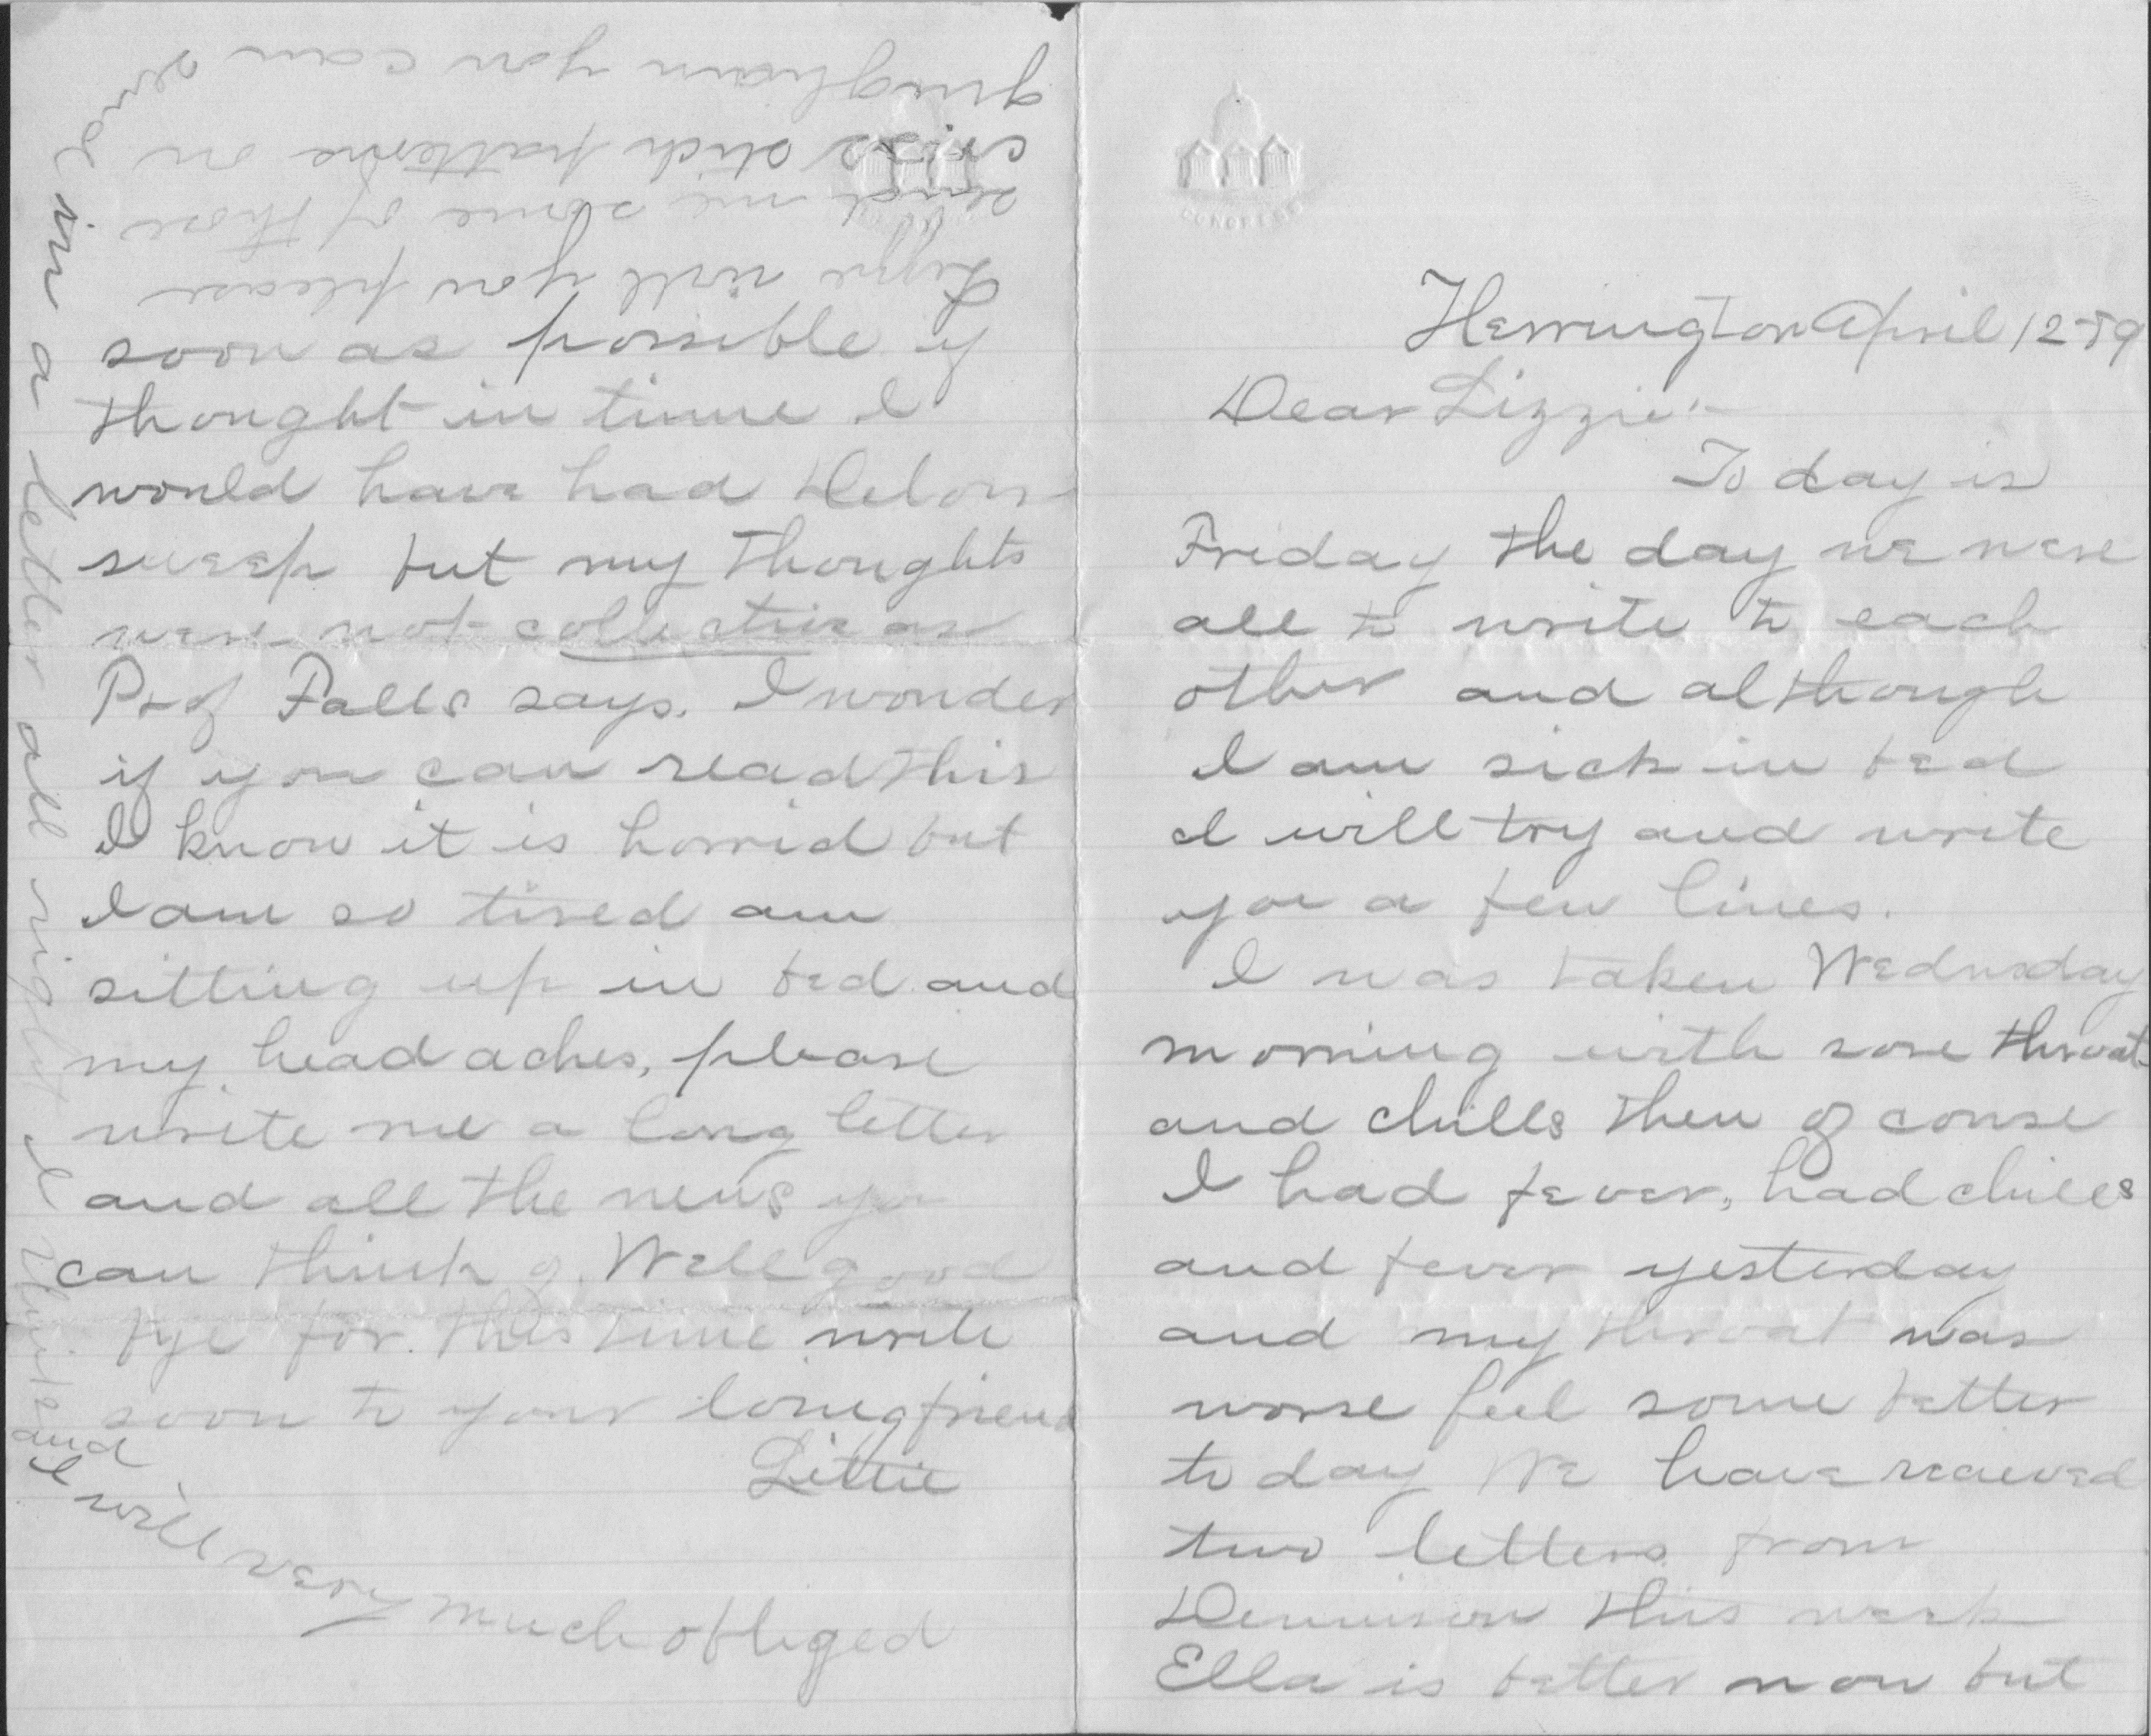 CONGRESS
Herrington April 12-89
Dear Lizzie:-
To day is
Friday the day we were
all to write to each
other and although
I am sick in bed
I will try and write
you a few lines.
I was taken Wednesday
morning with sore throat
and chills then of course
I had fever, had chills
and fever yesterday
and my throat was
worse feel some better
to day We have received
two letters from
Dennison this week
Ella is better now but
soon as possible if
thought in time I
would have had
sweep but my thoughts
were not collective as
Prof Falls says. I wonder
if you can read this
I know it is horrid but
I am so tired am
sitting up in bed and
my head aches, please
write me a long letter
and all the news you
can think of. Well good
bye for this time write
soon to your loving friend
Lillie
Lizzie will you please
send me some of those
cross stich patterns on
gingham you can
send in a letter all right I think
and
I will very much obliged